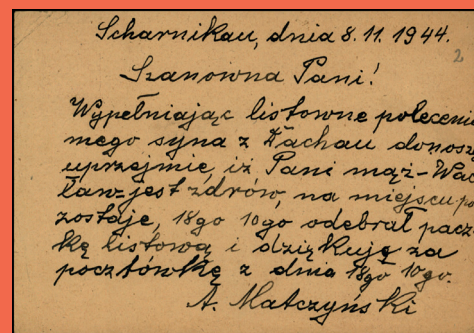 Scharnikau, dnia 8.11.1944.
2
Szanowna Pani!
Wypełniając listowne polecenie
mego syna z Dachau donoszę
uprzejmie, iż Pani mąż-Wac
ław-jest zdrów, na miejscu po
zostaje, 18go 10go odebrał pacz
kę listową i dziękuję za
pocztówkę z dnia 18go 10go.
A. Matczyński